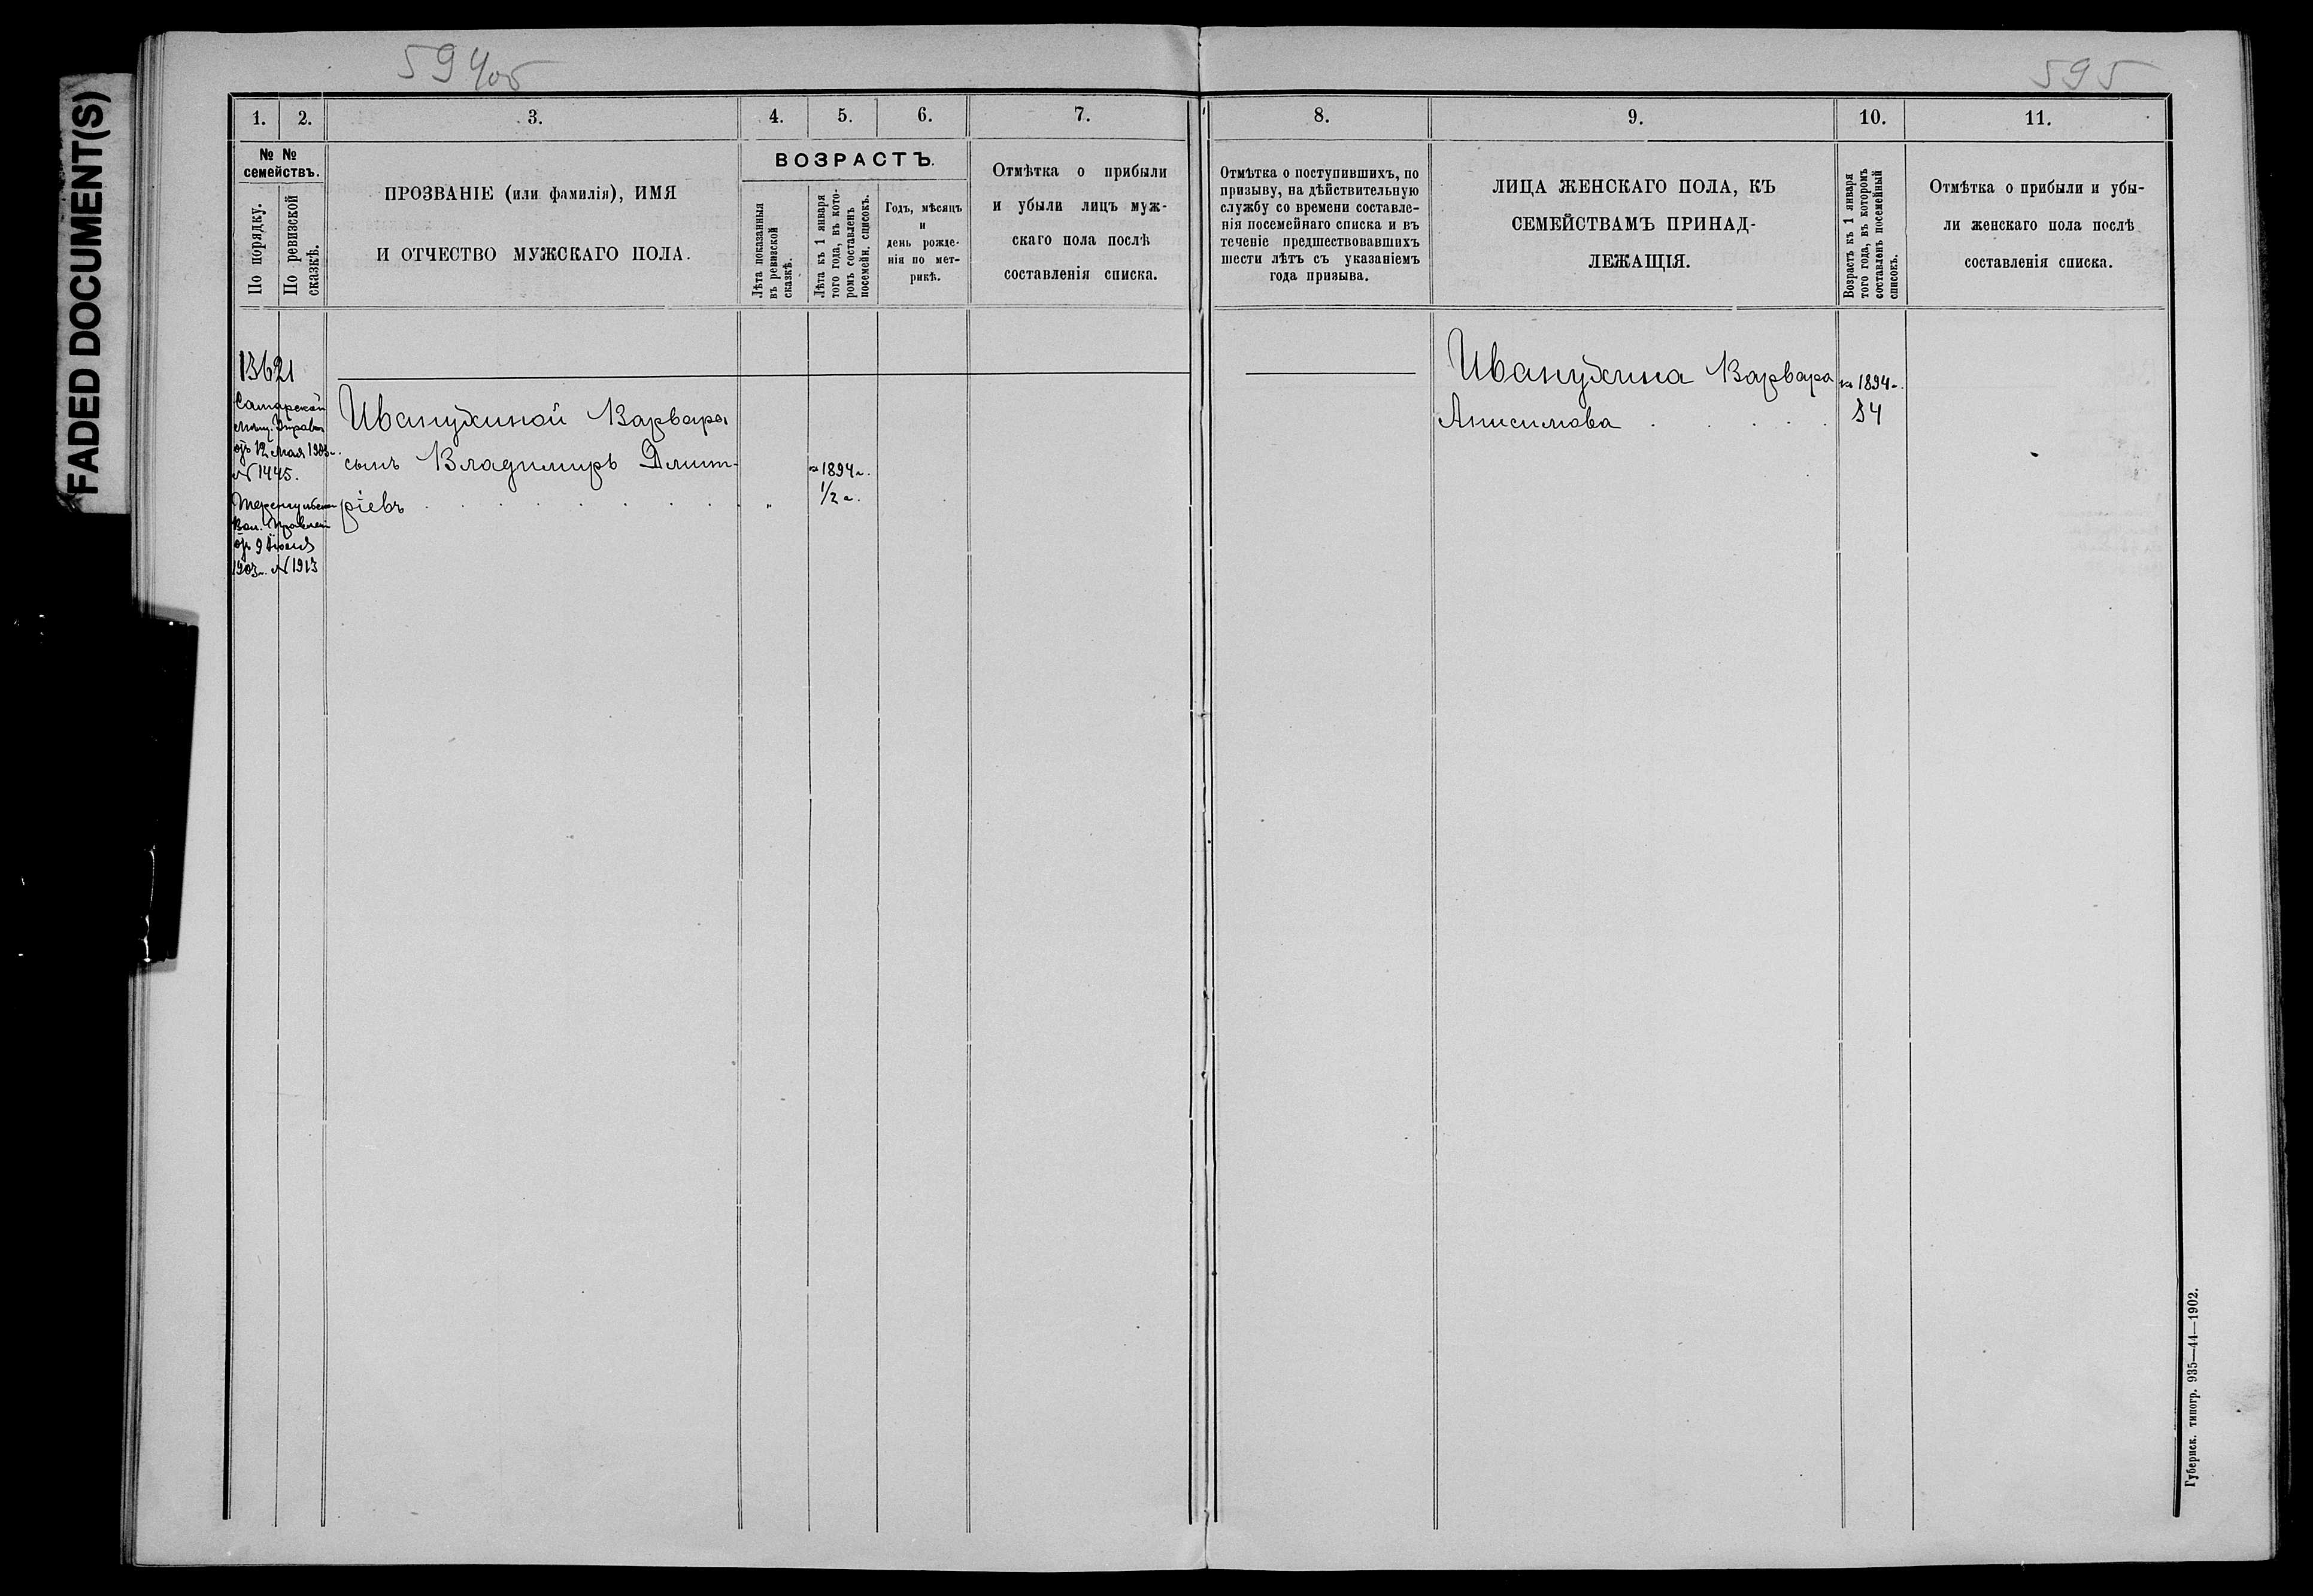 FADED DOCUMENT(S)
594об
595
1. 2. 3. 4. 5. 6. 7. 8. 9. 10. 11.
№ №
семействъ.
По порядку.
По ревизской
сказкѣ.
ПРОЗВАНІЕ (или фамилія), ИМЯ
И ОТЧЕСТВО МУЖСКАГО ПОЛА.
ВОЗРАСТЪ.
Лѣта показанныя
въ ревизской
сказкѣ.
Лѣта къ 1 января
того года, въ кото-
ромъ составленъ
посемейн. списокъ.
Годъ, мѣсяцъ
и
день рожде-
нія по мет-
рикѣ.
Отмѣтка о прибыли
и убыли лицъ муж-
скаго пола послѣ
составленія списка.
Отмѣтка о поступившихъ, по
призыву, на дѣйствительную
службу со времени составле-
нія посемейнаго списка и въ
теченіе предшествовавшихъ
шести лѣтъ съ указаніемъ
года призыва.
ЛИЦА ЖЕНСКАГО ПОЛА, КЪ
СЕМЕЙСТВАМЪ ПРИНАД-
ЛЕЖАЩІЯ.
Возрастъ къ 1 января
того года, въ которомъ
составленъ посемейный
списокъ.
Отмѣтка о прибыли и убы-
ли женскаго пола послѣ
составленія списка.
13621
Самарской
мѣщ. Управы
отъ 12 мая 1903 г.
№ 1445.
Вол. Правленія
1903 г. № 1913
Иванухиной Варвары
сынъ Владимиръ Дмит-
ріевъ . . . . . . . „
на 1894 г.
1/2 г.
Иванухина Варвара
Анисимова . . . . .
на 1894 г.
34
Губернск. типогр. 935—44—1902.